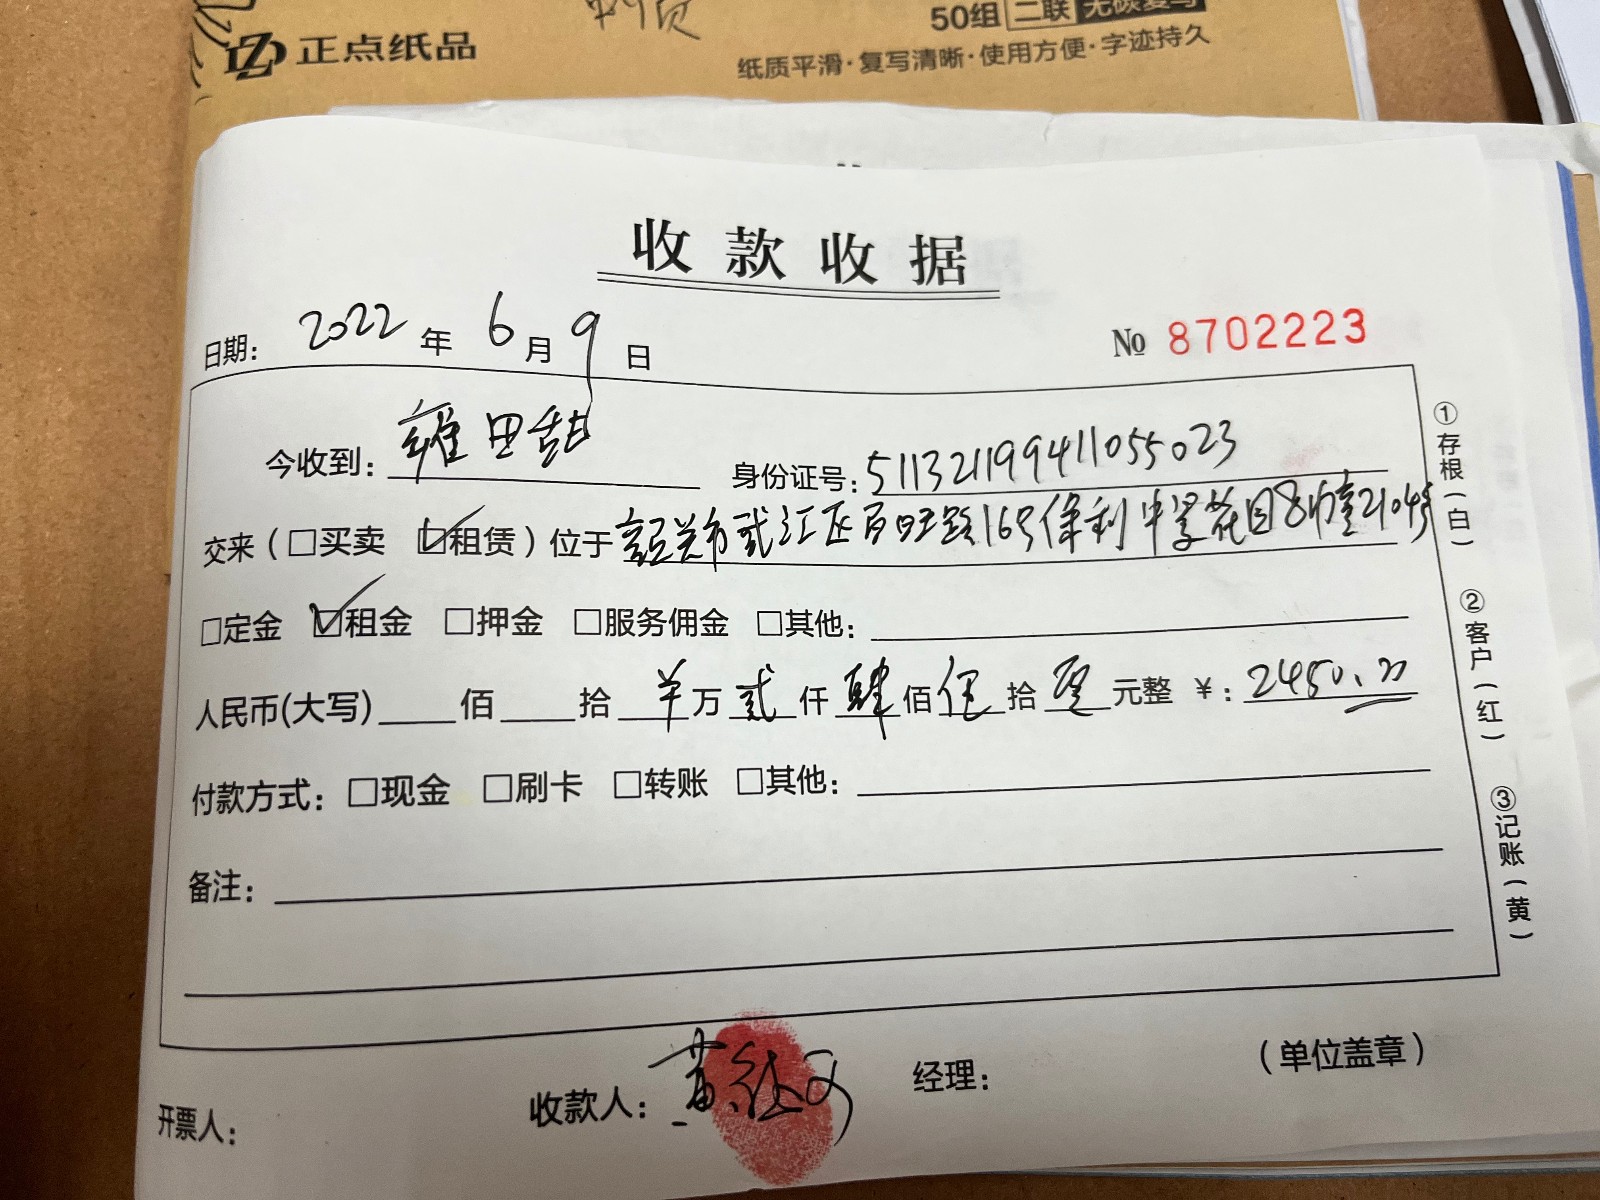 正点纸品
50组 二联 无碳复写
纸质平滑·复写清晰·使用方便·字迹持久
收款收据
日期： 2022 年 6 月 9 日
№ 8702223
今收到： 雍田喆 身份证号：511321199411055023
交来（□买卖 ☑租赁）位于 韶关市武江区百旺路16号保利中景花园8幢2104房
□定金 ☑租金 □押金 □服务佣金 □其他：
人民币(大写) 佰 拾 羊万 贰 仟 肆 佰 伍 拾 零 元整 ￥：2450.00
付款方式：□现金 □刷卡 □转账 □其他：
备注：
开票人： 收款人： 经理： （单位盖章）
①存根（白） ②客户（红） ③记账（黄）